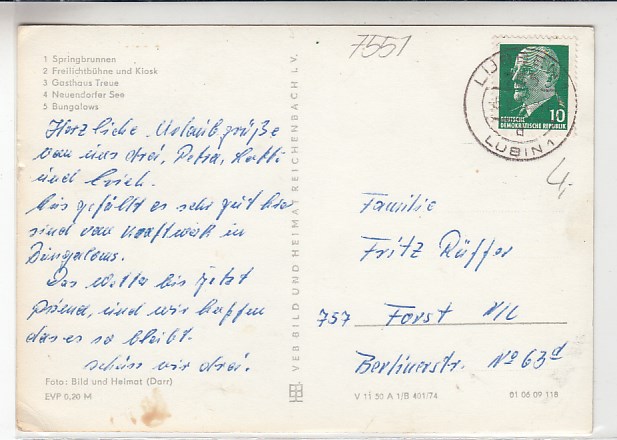 1 Springbrunnen
2 Freilichtbühne und Kiosk
3 Gasthaus Treue
4 Neuendorfer See
5 Bungalows
Herzliche Urlaubsgrüße
von uns drei, Petra,
und Erich.
Uns gefällt es sehr gut hier
sind vom Kraftwerk in
Bungalows.
Das Wetter bis jetzt
und wir hoffen
das es so bleibt.
schüss wir drei.
Foto: Bild und Heimat (Darr)
EVP 0,20 M
VEB BILD UND HEIMAT REICHENBACH I. V.
7551
LÜBBEN
LUBIN
10
DEUTSCHE
DEMOKRATISCHE REPUBLIK
4,-
Familie
Fritz Rüffer
757 Forst N/L
Berlinerstr. No 63d
V 11 50 A 1/B 401/74
01 06 09 118